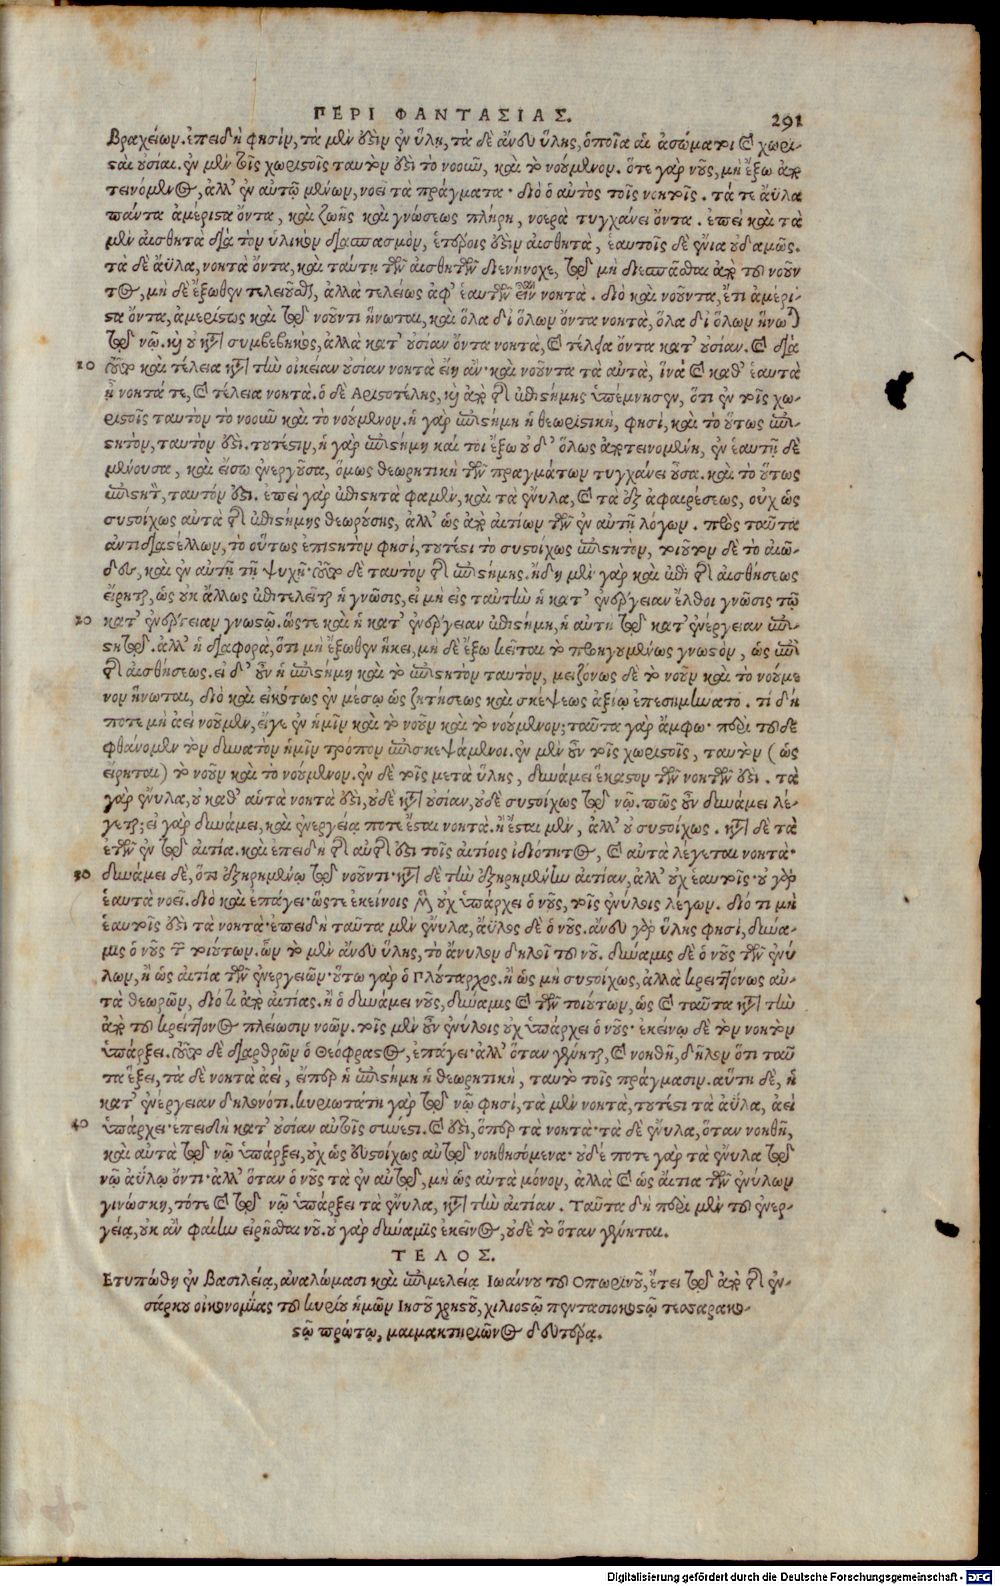 ΠΕΡΙ ΦΑΝΤΑΣΙΑΣ. 291
βραχείων. ἐπειδὴ φησὶν, τὰ μὲν ὅσιν ἐν ὕλῃ, τὰ δὲ ἄνευ ὕλης, ὁποῖα αἱ ἀσώματοι καὶ χωρι-
σαὶ οὐσίαι. ἐν μὲν τοῖς χωριστοῖς ταυτὸν ὅσι τὸ νοοῦν, καὶ τὸ νούμενον. ὅτε γὰρ νοῦς, μὴ ἔξω ἀπο
τεινόμενος, ἀλλ' ἐν αὑτῷ μένων, νοεῖ τὰ πράγματα· διὸ ὁ αὐτὸς τοῖς νοητοῖς. τά τε ἄϋλα
πάντα ἀμέριστα ὄντα, καὶ ζωῆς καὶ γνώσεως πλήρη, νοερὰ τυγχάνει ὄντα. ἐπεὶ καὶ τὰ
μὲν αἰσθητὰ διὰ τὸν ὑλικὸν διασπασμὸν, ἑτέροις ὅσιν αἰσθητὰ, ἑαυτοῖς δὲ ἔνια οὐδαμῶς.
τὰ δὲ ἄϋλα, νοητὰ ὄντα, καὶ ταύτῃ τῶν αἰσθητῶν διενήνοχε, τῷ μὴ διεσπᾶσθαι ἀπὸ τοῦ νοῦν
τος, μὴ δὲ ἔξωθεν τελειοῦσθαι, ἀλλὰ τελείως ἀφ' ἑαυτῶν εἶναι νοητά. διὸ καὶ νοῦντα, ἔτι ἀμέρι-
στα ὄντα, ἀμερίστως καὶ τῷ νοῦντι ἥνωται, καὶ ὅλα δι' ὅλων ὄντα νοητὰ, ὅλα δι' ὅλων ἥνωται
τῷ νῷ. καὶ οὐ κατὰ συμβεβηκὸς, ἀλλὰ κατ' οὐσίαν ὄντα νοητὰ, καὶ τέλεια ὄντα κατ' οὐσίαν. καὶ διὰ
10 τοῦτο καὶ τέλεια κατὰ τὴν οἰκείαν οὐσίαν νοητὰ εἴη ἄν· καὶ νοῦντα τὰ αὐτὰ, ἵνα καὶ καθ' ἑαυτὰ
ᾖ νοητά τε, καὶ τέλεια νοητά. ὁ δὲ Αριστοτέλης, καὶ ἀπὸ τῆς ἐπιστήμης ὑπέμνησεν, ὅτι ἐν τοῖς χω-
ριστοῖς ταυτὸν τὸ νοοῦν καὶ τὸ νούμενον. ἡ γὰρ ἐπιστήμη ἡ θεωριστικὴ, φησὶ, καὶ τὸ οὕτως ἐπι-
στητὸν, ταυτὸν ὅσι. τουτέστιν, ἡ γὰρ ἐπιστήμη καί τοι ἔξω οὐδ' ὅλως ἀποτεινομένη, ἐν ἑαυτῇ δὲ
μένουσα, καὶ εἴσω ἐνεργοῦσα, ὅμως θεωρητικὴ τῶν πραγμάτων τυγχάνει οὖσα. καὶ τὸ οὕτως
ἐπιστητὸν, ταυτόν ὅσι. ἐπεὶ γὰρ ἐπιστητὰ φαμὲν, καὶ τὰ ἔνυλα, καὶ τὰ ἐξ ἀφαιρέσεως, οὐχ ὡς
συστοίχως αὐτὰ τῆς ἐπιστήμης θεωρούσης, ἀλλ' ὡς ἀπὸ αἰτίων τῶν ἐν αὐτῇ λόγων. πρὸς ταῦτα
ἀντιδιαστέλλων, τὸ οὕτως ἐπιστητὸν φησὶ, τουτέστι τὸ συστοίχως ἐπιστητὸν, τοιοῦτον δὲ τὸ ἀιῶ-
δες, καὶ ἐν αὐτῇ τῇ ψυχῇ· τοῦτο δὲ ταυτὸν τῆς ἐπιστήμης. ἤδη μὲν γὰρ καὶ ἐπὶ τῆς αἰσθήσεως
εἴρηται, ὡς οὐκ ἄλλως ἐπιτελεῖται ἡ γνῶσις, εἰ μὴ εἰς ταυτὴν ἡ κατ' ἐνέργειαν ἔλθοι γνῶσις τῷ
20 κατ' ἐνέργειαν γνωστῷ. ὥστε καὶ ἡ κατ' ἐνέργειαν ἐπιστήμη, ἡ αὐτὴ τῷ κατ' ἐνέργειαν ἐπι-
στητῷ. ἀλλ' ἡ διαφορὰ, ὅτι μὴ ἔξωθεν ἥκει, μὴ δὲ ἔξω κεῖται τὸ προηγουμένως γνωστὸν, ὡς ἐπὶ
τῆς αἰσθήσεως. εἰ δ' οὖν ἡ ἐπιστήμη καὶ τὸ ἐπιστητὸν ταυτὸν, μειζόνως δὲ τὸ νοῦν καὶ τὸ νούμε
νον ἥνωται, διὸ καὶ εἰκότως ἐν μέσῳ ὡς ζητήσεως καὶ σκέψεως ἀξίῳ ἐπεσημήνατο. τί δή
ποτε μὴ ἀεὶ νοῦμεν, εἴγε ἐν ἡμῖν καὶ τὸ νοῦν καὶ τὸ νούμενον; ταῦτα γὰρ ἄμφω· περὶ τοῦδε
φθάνομεν τὸν δυνατὸν ἡμῖν τρόπον ἐπισκεψάμενοι. ἐν μὲν οὖν τοῖς χωριστοῖς, ταυτὸν (ὡς
εἴρηται) τὸ νοῦν καὶ τὸ νούμενον. ἐν δὲ τοῖς μετὰ ὕλης, δυνάμει ἕκαστον τῶν νοητῶν ὅσι. τὰ
γὰρ ἔνυλα, οὐ καθ' αὑτὰ νοητὰ ὅσι, οὐδὲ κατ' οὐσίαν, οὐδὲ συστοίχως τῷ νῷ. πῶς οὖν δυνάμει λέ-
γεται; εἰ γὰρ δυνάμει, καὶ ἐνεργείᾳ ποτε ἔσται νοητά. ἢ ἔσται μὲν, ἀλλ' οὐ συστοίχως. κατὰ δὲ τὰ
ἐτῶν ἐν τῷ αἰτία. καὶ ἐπειδὴ τῆς αὐτῆς ὅσι τοῖς αἰτίοις ἰδιότητος, καὶ αὐτὰ λέγεται νοητά·
30 δυνάμει δὲ, ὅτι ἐξηρημένῳ τῷ νοῦντι· κατὰ δὲ τὴν ἐξηρημένην αἰτίαν, ἀλλ' οὐχ ἑαυτοῖς· οὐ γὰρ
ἑαυτὰ νοεῖ. διὸ καὶ ἐπάγει· ὥστε ἐκείνοις μὲν οὐχ ὑπάρχει ὁ νοῦς, τοῖς ἐνύλοις λέγων. διό τι μὴ
ἑαυτοῖς ὅσι τὰ νοητά· ἐπειδὴ ταῦτα μὲν ἔνυλα, ἄϋλος δὲ ὁ νοῦς. ἄνευ γὰρ ὕλης φησὶ, δύνα-
μις ὁ νοῦς τῶν τοιούτων. ὧν τὸ μὲν ἄνευ ὕλης, τὸ ἄνυλον δηλοῖ τοῦ νοῦ. δύναμις δὲ ὁ νοῦς τῶν ἐνύ
λων, ἢ ὡς αἰτία τῶν ἐνεργειῶν· οὕτω γὰρ ὁ Πλούταρχος. ἢ ὡς μὴ συστοίχως, ἀλλὰ κρειττόνως αὐ-
τὰ θεωρῶν, διότι ἀπὸ αἰτίας. ἢ ὁ δυνάμει νοῦς, δύναμις καὶ τῶν τοιούτων, ὡς καὶ ταῦτα κατὰ τὴν
ἀπὸ τοῦ κρείττονος πλείωσιν νοῶν. τοῖς μὲν οὖν ἐνύλοις οὐχ ὑπάρχει ὁ νοῦς· ἐκείνῳ δὲ τὸν νοητὸν
ὑπάρξει. τοῦτο δὲ διαρθρῶν ὁ Θεόφραστος, ἐπάγει· ἀλλ' ὅταν γένηται, καὶ νοηθῇ, δῆλον ὅτι ταῦ
τα ἕξει, τὰ δὲ νοητὰ ἀεὶ, εἴπερ ἡ ἐπιστήμη ἡ θεωρητικὴ, ταυτὸ τοῖς πράγμασιν. αὕτη δὲ, ἡ
κατ' ἐνέργειαν δηλονότι. κυριωτάτη γὰρ τῷ νῷ φησὶ, τὰ μὲν νοητὰ, τουτέστι τὰ ἄϋλα, ἀεὶ
40 ὑπάρχει· ἐπειδὴ κατ' οὐσίαν αὐτοῖς σύνεστι. καὶ ὅσι, ὅπερ τὰ νοητά· τὰ δὲ ἔνυλα, ὅταν νοηθῇ,
καὶ αὐτὰ τῷ νῷ ὑπάρξει, οὐχ ὡς συστοίχως αὐτῷ νοηθησόμενα· οὐδέ ποτε γὰρ τὰ ἔνυλα τῷ
νῷ ἀΰλῳ ὄντι· ἀλλ' ὅταν ὁ νοῦς τὰ ἐν αὐτῷ, μὴ ὡς αὐτὰ μόνον, ἀλλὰ καὶ ὡς αἴτια τῶν ἐνύλων
γινώσκῃ, τότε καὶ τῷ νῷ ὑπάρξει τὰ ἔνυλα, κατὰ τὴν αἰτίαν. Ταῦτα δὴ περὶ μὲν τοῦ ἐνερ-
γείᾳ, οὐκ ἂν φαίην εἰρῆσθαι νοῦ. οὐ γὰρ δυνάμει ἐκεῖνος, οὐδὲ τὸ ὅταν γένηται.
ΤΕΛΟΣ.
Ετυπώθη ἐν Βασιλείᾳ, ἀναλώμασι καὶ ἐπιμελείᾳ Ιωάννου τοῦ Οπωρίνου, ἔτει τῷ ἀπὸ τῆς ἐν-
σάρκου οἰκονομίας τοῦ κυρίου ἡμῶν Ιησοῦ χριστοῦ, χιλιοστῷ πεντασιοκοστῷ τεσσαρακο-
στῷ πρώτῳ, μαιμακτηριῶνος δευτέρᾳ.
Digitalisierung gefördert durch die Deutsche Forschungsgemeinschaft - DFG